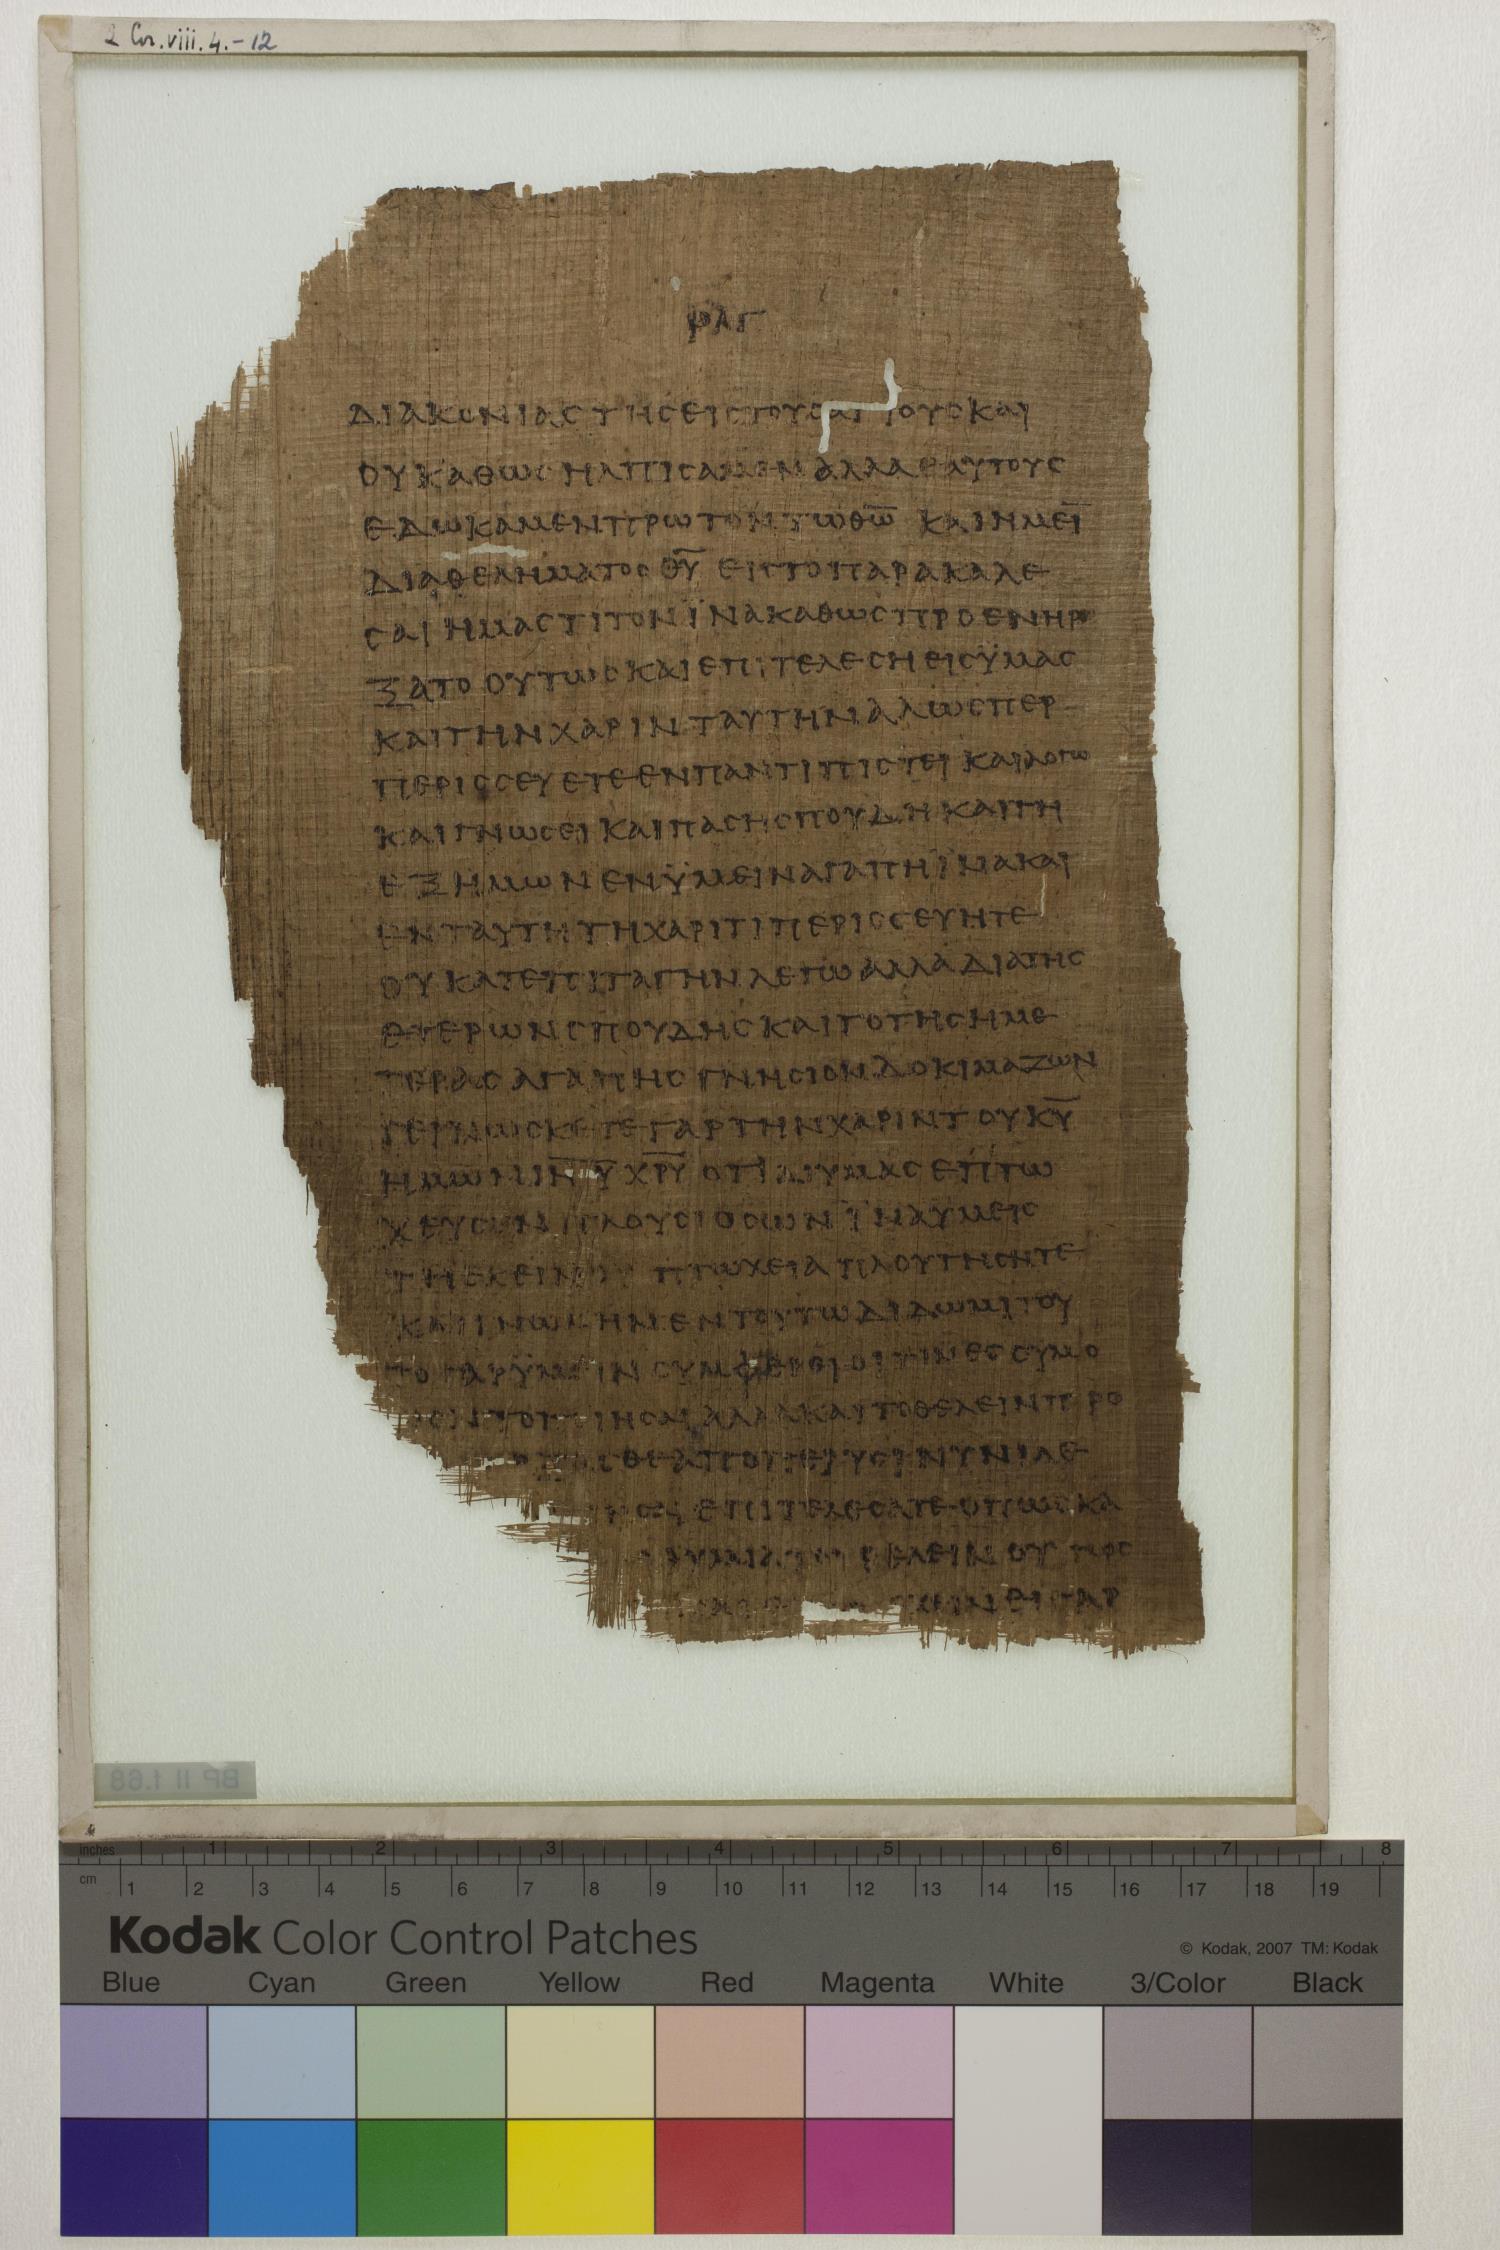 2 Cor. viii. 4.-12
ΡΛΓ
ΔΙΑΚΟΝΙΑΣ ΤΗΣ ΕΙΣ ΤΟΥΣ ΑΓΙΟΥΣ ΚΑΙ
ΟΥ ΚΑΘΩΣ ΗΛΠΙΣΑΜΕΝ ΑΛΛΑ ΕΑΥΤΟΥΣ
ΕΔΩΚΑΜΕΝ ΠΡΩΤΟΝ ΤΩ Θ̅Ω̅ ΚΑΙ ΗΜΕΙ̅
ΔΙΑ ΘΕΛΗΜΑΤΟΣ Θ̅Υ̅ ΕΙΣ ΤΟ ΠΑΡΑΚΑΛΕ
ΣΑΙ ΗΜΑΣ ΤΙΤΟΝ ΪΝΑ ΚΑΘΩΣ ΠΡΟΕΝΗΡ
ΞΑΤΟ ΟΥΤΩΣ ΚΑΙ ΕΠΙΤΕΛΕΣΗ ΕΙΣ ΫΜΑΣ
ΚΑΙ ΤΗΝ ΧΑΡΙΝ ΤΑΥΤΗΝ ΑΛ ΩΣΠΕΡ
ΠΕΡΙΣΣΕΥΕΤΕ ΕΝ ΠΑΝΤΙ ΠΙΣΤΕΙ ΚΑΙ ΛΟΓΩ
ΚΑΙ ΓΝΩΣΕΙ ΚΑΙ ΠΑΣΗ ΣΠΟΥΔΗ ΚΑΙ ΤΗ
ΕΞ ΗΜΩΝ ΕΝ ΫΜΕΙΝ ΑΓΑΠΗ ΪΝΑ ΚΑΙ
ΕΝ ΤΑΥΤΗ ΤΗ ΧΑΡΙΤΙ ΠΕΡΙΣΣΕΥΗΤΕ
ΟΥ ΚΑΤ ΕΠΙΤΑΓΗΝ ΛΕΓΩ ΑΛΛΑ ΔΙΑ ΤΗΣ
ΕΤΕΡΩΝ ΣΠΟΥΔΗΣ ΚΑΙ ΤΟ ΤΗΣ ΗΜΕ
ΤΕΡΑΣ ΑΓΑΠΗΣ ΓΝΗΣΙΟΝ ΔΟΚΙΜΑΖΩΝ
ΓΕΙΝΩΣΚΕΤΕ ΓΑΡ ΤΗΝ ΧΑΡΙΝ ΤΟΥ Κ̅Υ̅
ΗΜΩΝ Ι̅Η̅Υ̅ Χ̅Ρ̅Υ̅ ΟΤΙ ΔΙ ΥΜΑΣ ΕΠΤΩ
ΧΕΥΣΕΝ ΠΛΟΥΣΙΟΣ ΩΝ ΪΝΑ ΥΜΕΙΣ
ΤΗ ΕΚΕΙΝΟΥ ΠΤΩΧΕΙΑ ΠΛΟΥΤΗΣΗΤΕ
ΚΑΙ ΓΝΩΜΗΝ ΕΝ ΤΟΥΤΩ ΔΙΔΩΜΙ ΤΟΥ
ΤΟ ΓΑΡ ΫΜΕΙΝ ΣΥΜΦΕΡΕΙ ΟΙΤΙΝΕΣ ΟΥ ΜΟ
ΝΟΝ ΤΟ ΠΟΙΗΣΑΙ ΑΛΛΑ ΚΑΙ ΤΟ ΘΕΛΕΙΝ ΠΡΟ
ΘΕ ΑΠΟ ΠΕΡΥΣΙ ΝΥΝΙ ΔΕ
ΕΠΙΤΕΛΕΣΑΤΕ ΟΠΩΣ ΚΑ
ΘΥΜΙΑ ΤΟΥ ΘΕΛΕΙΝ ΟΥΤΩΣ
ΕΙ ΓΑΡ
BP II f.68
inches 1 2 3 4 5 6 7 8
cm 1 2 3 4 5 6 7 8 9 10 11 12 13 14 15 16 17 18 19
Kodak Color Control Patches
© Kodak, 2007 TM: Kodak
Blue Cyan Green Yellow Red Magenta White 3/Color Black